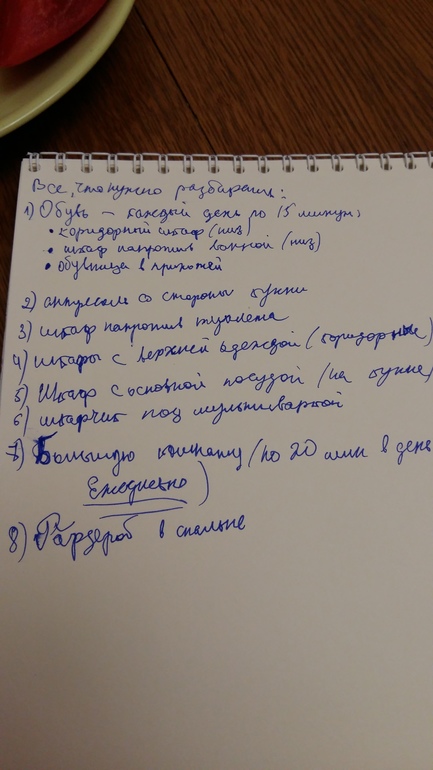 Все, что нужно разбирать:
1) Обувь – каждый день по 15 минут:
• коридорный шкаф (низ)
• шкаф напротив ванной (низ)
• обувница в прихожей
2) антресоль со стороны кухни
3) шкаф напротив туалета
4) шкафы с верхней одеждой (коридорные)
5) Шкаф с основной посудой (на кухне)
6) шкафчик под мультиваркой
7) Большую комнату (по 20 мин в день
Ежедневно)
8) Гардероб в спальне